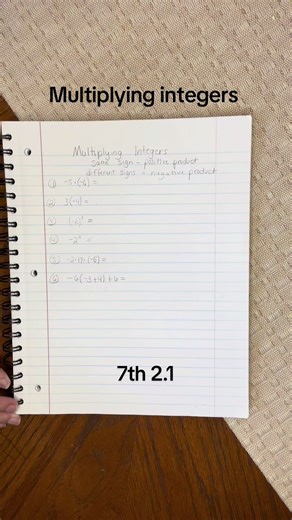 Multiplying integers
Multiplying Integers
same sign = positive product
different signs = negative product
① -5·(-6) =
② 3(-4) =
③
④ -2² =
⑤
⑥ -6(-3+4)+6 =
7th 2.1